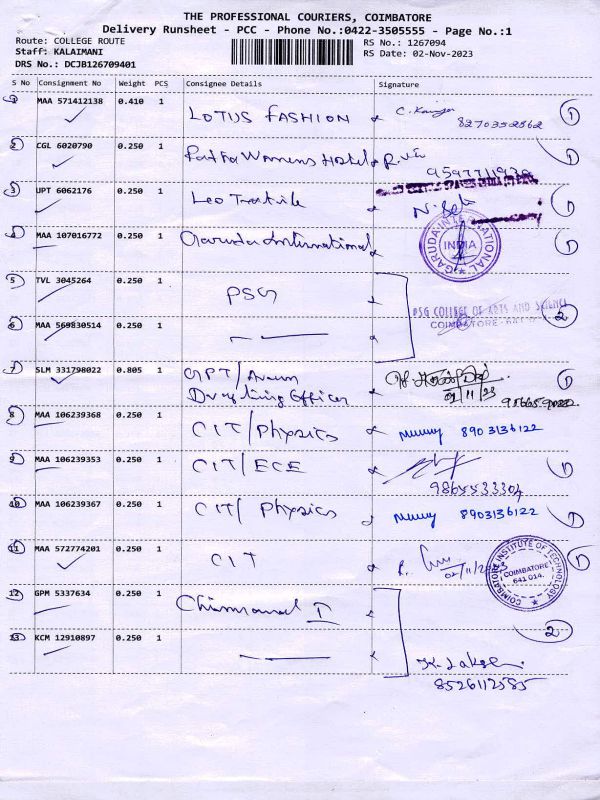 THE PROFESSIONAL COURIERS, COIMBATORE
Delivery Runsheet - PCC - Phone No.:0422-3505555 - Page No.:1
Route: COLLEGE ROUTE
Staff: KALAIMANI
DRS No.: DCJB126709401
RS No.: 1267094
RS Date: 02-Nov-2023
S No Consignment No Weight PCS Consignee Details Signature
1 MAA 571412138 0.410 1 LOTUS FASHION 8270352862 1
2 CGL 6020790 0.250 1 Womens Hostel 1
3 UPT 6062176 0.250 1 Leo 1
4 MAA 107016772 0.250 1 Garuda International 1
GARUDA INTERNATIONAL
INDIA
5 TVL 3045264 0.250 1 PSG
PSG COLLEGE OF ARTS AND SCIENCE
COIMBATORE
2
6 MAA 569830514 0.250 1
7 SLM 331798022 0.805 1 GPT/
Officer 02/11/23 1
8 MAA 106239368 0.250 1 CIT/Physics 8903136122 1
9 MAA 106239353 0.250 1 CIT/ECE 1
9865533304
10 MAA 106239367 0.250 1 CIT/Physics 8903136122 1
11 MAA 572774201 0.250 1 CIT 02/11/2023 1
COIMBATORE INSTITUTE OF TECHNOLOGY
COIMBATORE
641 014.
12 GPM 5337634 0.250 1 I
2
13 KCM 12910897 0.250 1
8526112585